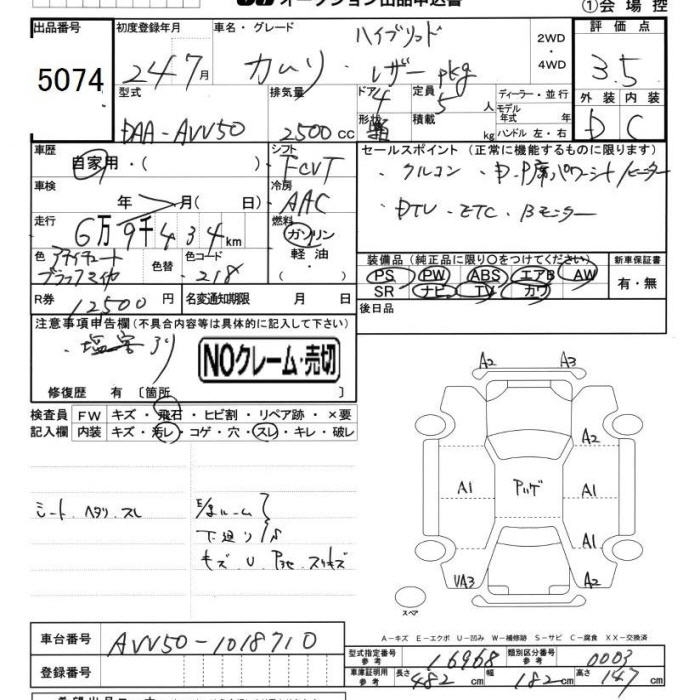 オークション出品申込書
①会場控
出品番号 初度登録年月 車名・グレード 評価点
5074 24 7月 カムリ ハイブリッド レザーpkg 2WD ・ 4WD 3.5
型式 排気量 ドア 定員 ディーラー・並行 外装 内装
DAA-AVV50 2500cc 4 5人 モデル年式 年 D C
形状 積載 kg ハンドル 左・右
車歴 シフト セールスポイント (正常に機能するものに限ります)
自家用・( ) FCVT ・クルコン ・D・P席パワーシート/ヒーター
車検 年 月(日) 冷房 AAC ・DTV ・ETC ・Bモニター
走行 6万9千434km 燃料 ガソリン 軽油 ・( )
色 アティチュードブラックマイカ 色替 色コード 218
装備品 (純正品に限り○をつけてください) 新車保証書
PS PW ABS エアB AW 有・無
SR ナビ TV カワ
R券 12500円 名変通知期限 月 日 後日品
注意事項申告欄(不具合内容等は具体的に記入して下さい)
・塩害あり
NOクレーム・売切
修復歴 有 [箇所 ]
検査員 FW キズ・飛石・ヒビ割・リペア跡・×要
記入欄 内装 キズ・汚レ・コゲ・穴・スレ・キレ・破レ
シート ヘタリ スレ
下廻り
キズ U
A2 A3
A2
A1 A1
A1
UA3 A2
スペア
A-キズ E-エクボ U-凹み W-補修跡 S-サビ C-腐食 XX-交換済
車台番号 AVV50-1018710
型式指定番号 参考 16968 類別区分番号 参考 0003
登録番号
車庫証明用 参考 長さ 482cm 幅 182cm 高さ 147cm